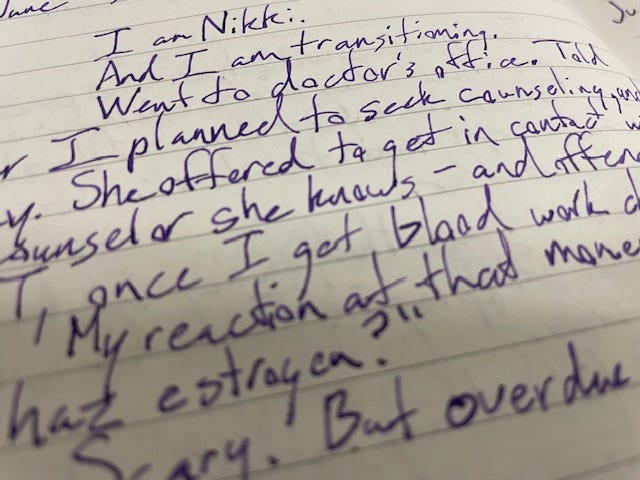 I am Nikki.
And I am transitioning.
Went to doctor's office. Told
r I planned to seek counseling, and
y. She offered to get in contact w
ounselor she knows - and offere
T, once I got blood work d
My reaction at that mome
hat estrogen?"
Scary. But overdue